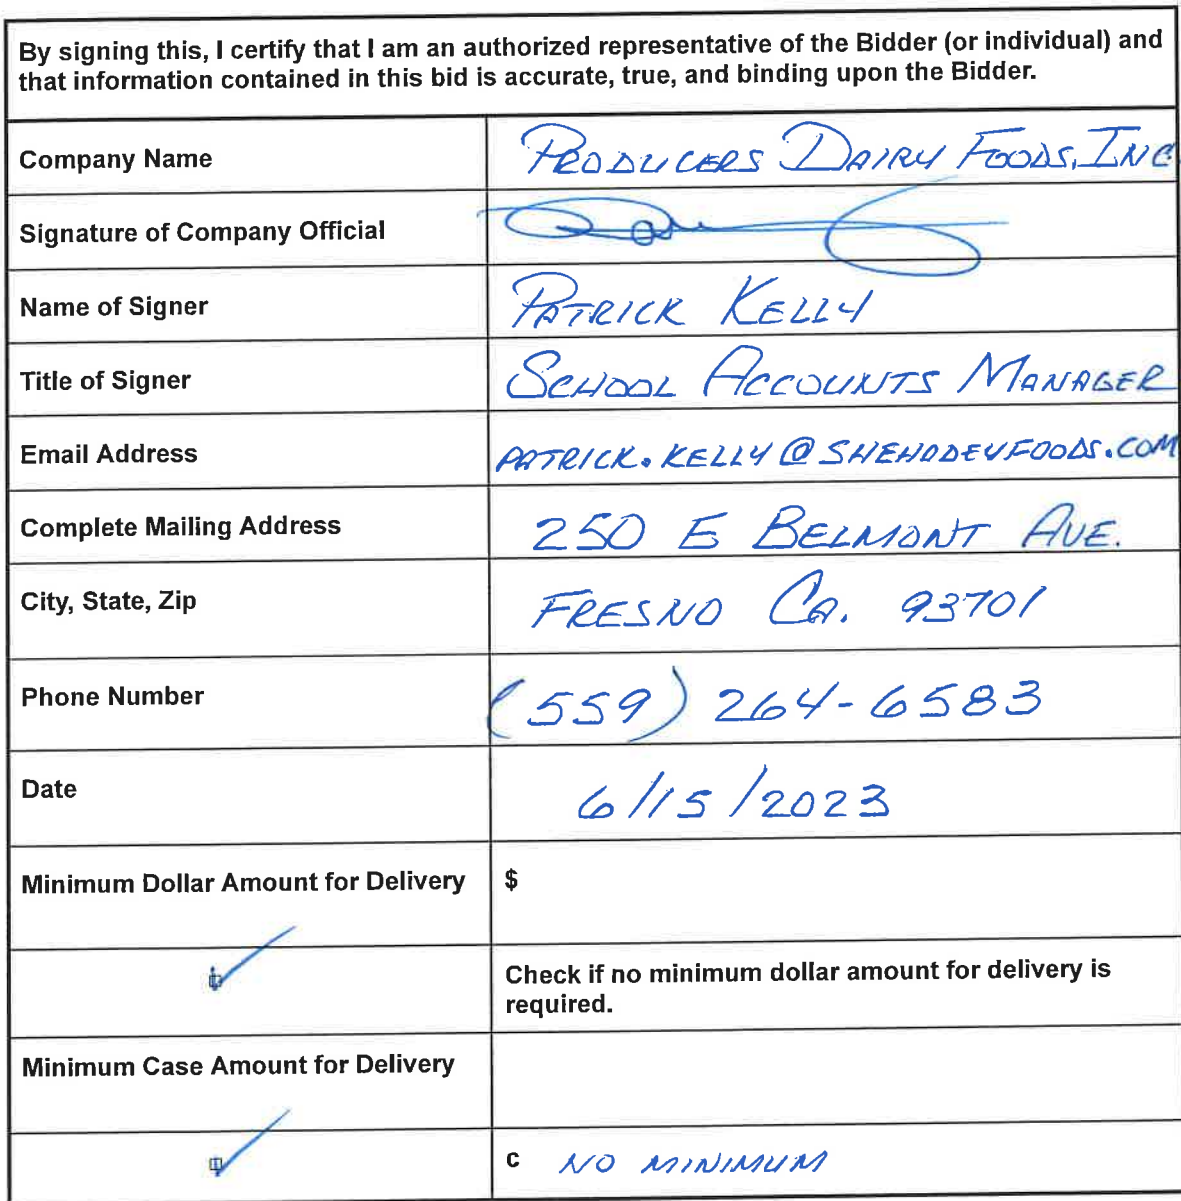 By signing this, I certify that I am an authorized representative of the Bidder (or individual) and
that information contained in this bid is accurate, true, and binding upon the Bidder.
Company Name PRODUCERS DAIRY FOODS, INC
Signature of Company Official
Name of Signer PATRICK KELLY
Title of Signer SCHOOL ACCOUNTS MANAGER
Email Address PATRICK.KELLY@SHEHODEYFOODS.COM
Complete Mailing Address 250 E BELMONT AVE.
City, State, Zip FRESNO CA. 93701
Phone Number (559) 264-6583
Date 6/15/2023
Minimum Dollar Amount for Delivery $
Check if no minimum dollar amount for delivery is
required.
Minimum Case Amount for Delivery
c NO MINIMUM